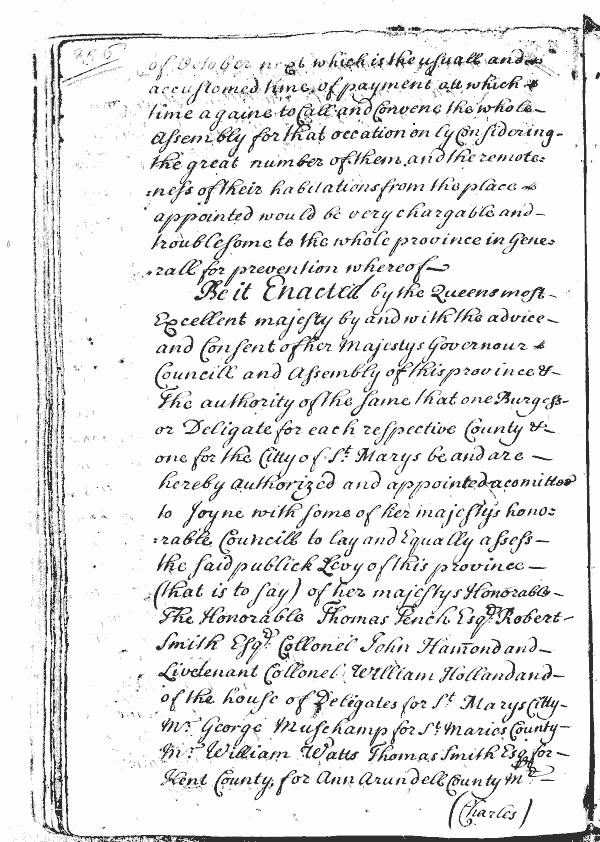 256
of October next which is the usuall and
accustomed time of payment att which
time againe to Call and Convene the whole
Assembly for that occation only Considering
the great number of them and the remote=
=ness of their habitations from the place
appointed would be very chargable and
troublesome to the whole province in Gene=
=rall for prevention whereof
Be it Enacted by the Queens most
Excellent majesty by and with the advice
and Consent of her Majestys Governour
Councill and Assembly of this province &
The authority of the same that one Burgess
or Deligate for each respective County &
one for the Citty of St. Marys be and are
hereby authorized and appointed a comittee
to Joyne with some of her majestys hono=
=rable Councill to lay and Equally assess
the said publick Levy of this province
(that is to say) of her majestys Honorable
The Honorable Thomas Tench Esqr. Robert
Smith Esqr. Collonel John Hamond and
Livetenant Collonel William Holland and
of the house of Deligates for St Marys Citty
Mr. George Muschamp for St Maries County
Mr. William Watts Thomas Smith Esq for
Kent County, for Ann Arundell County Mr.
(Charles)